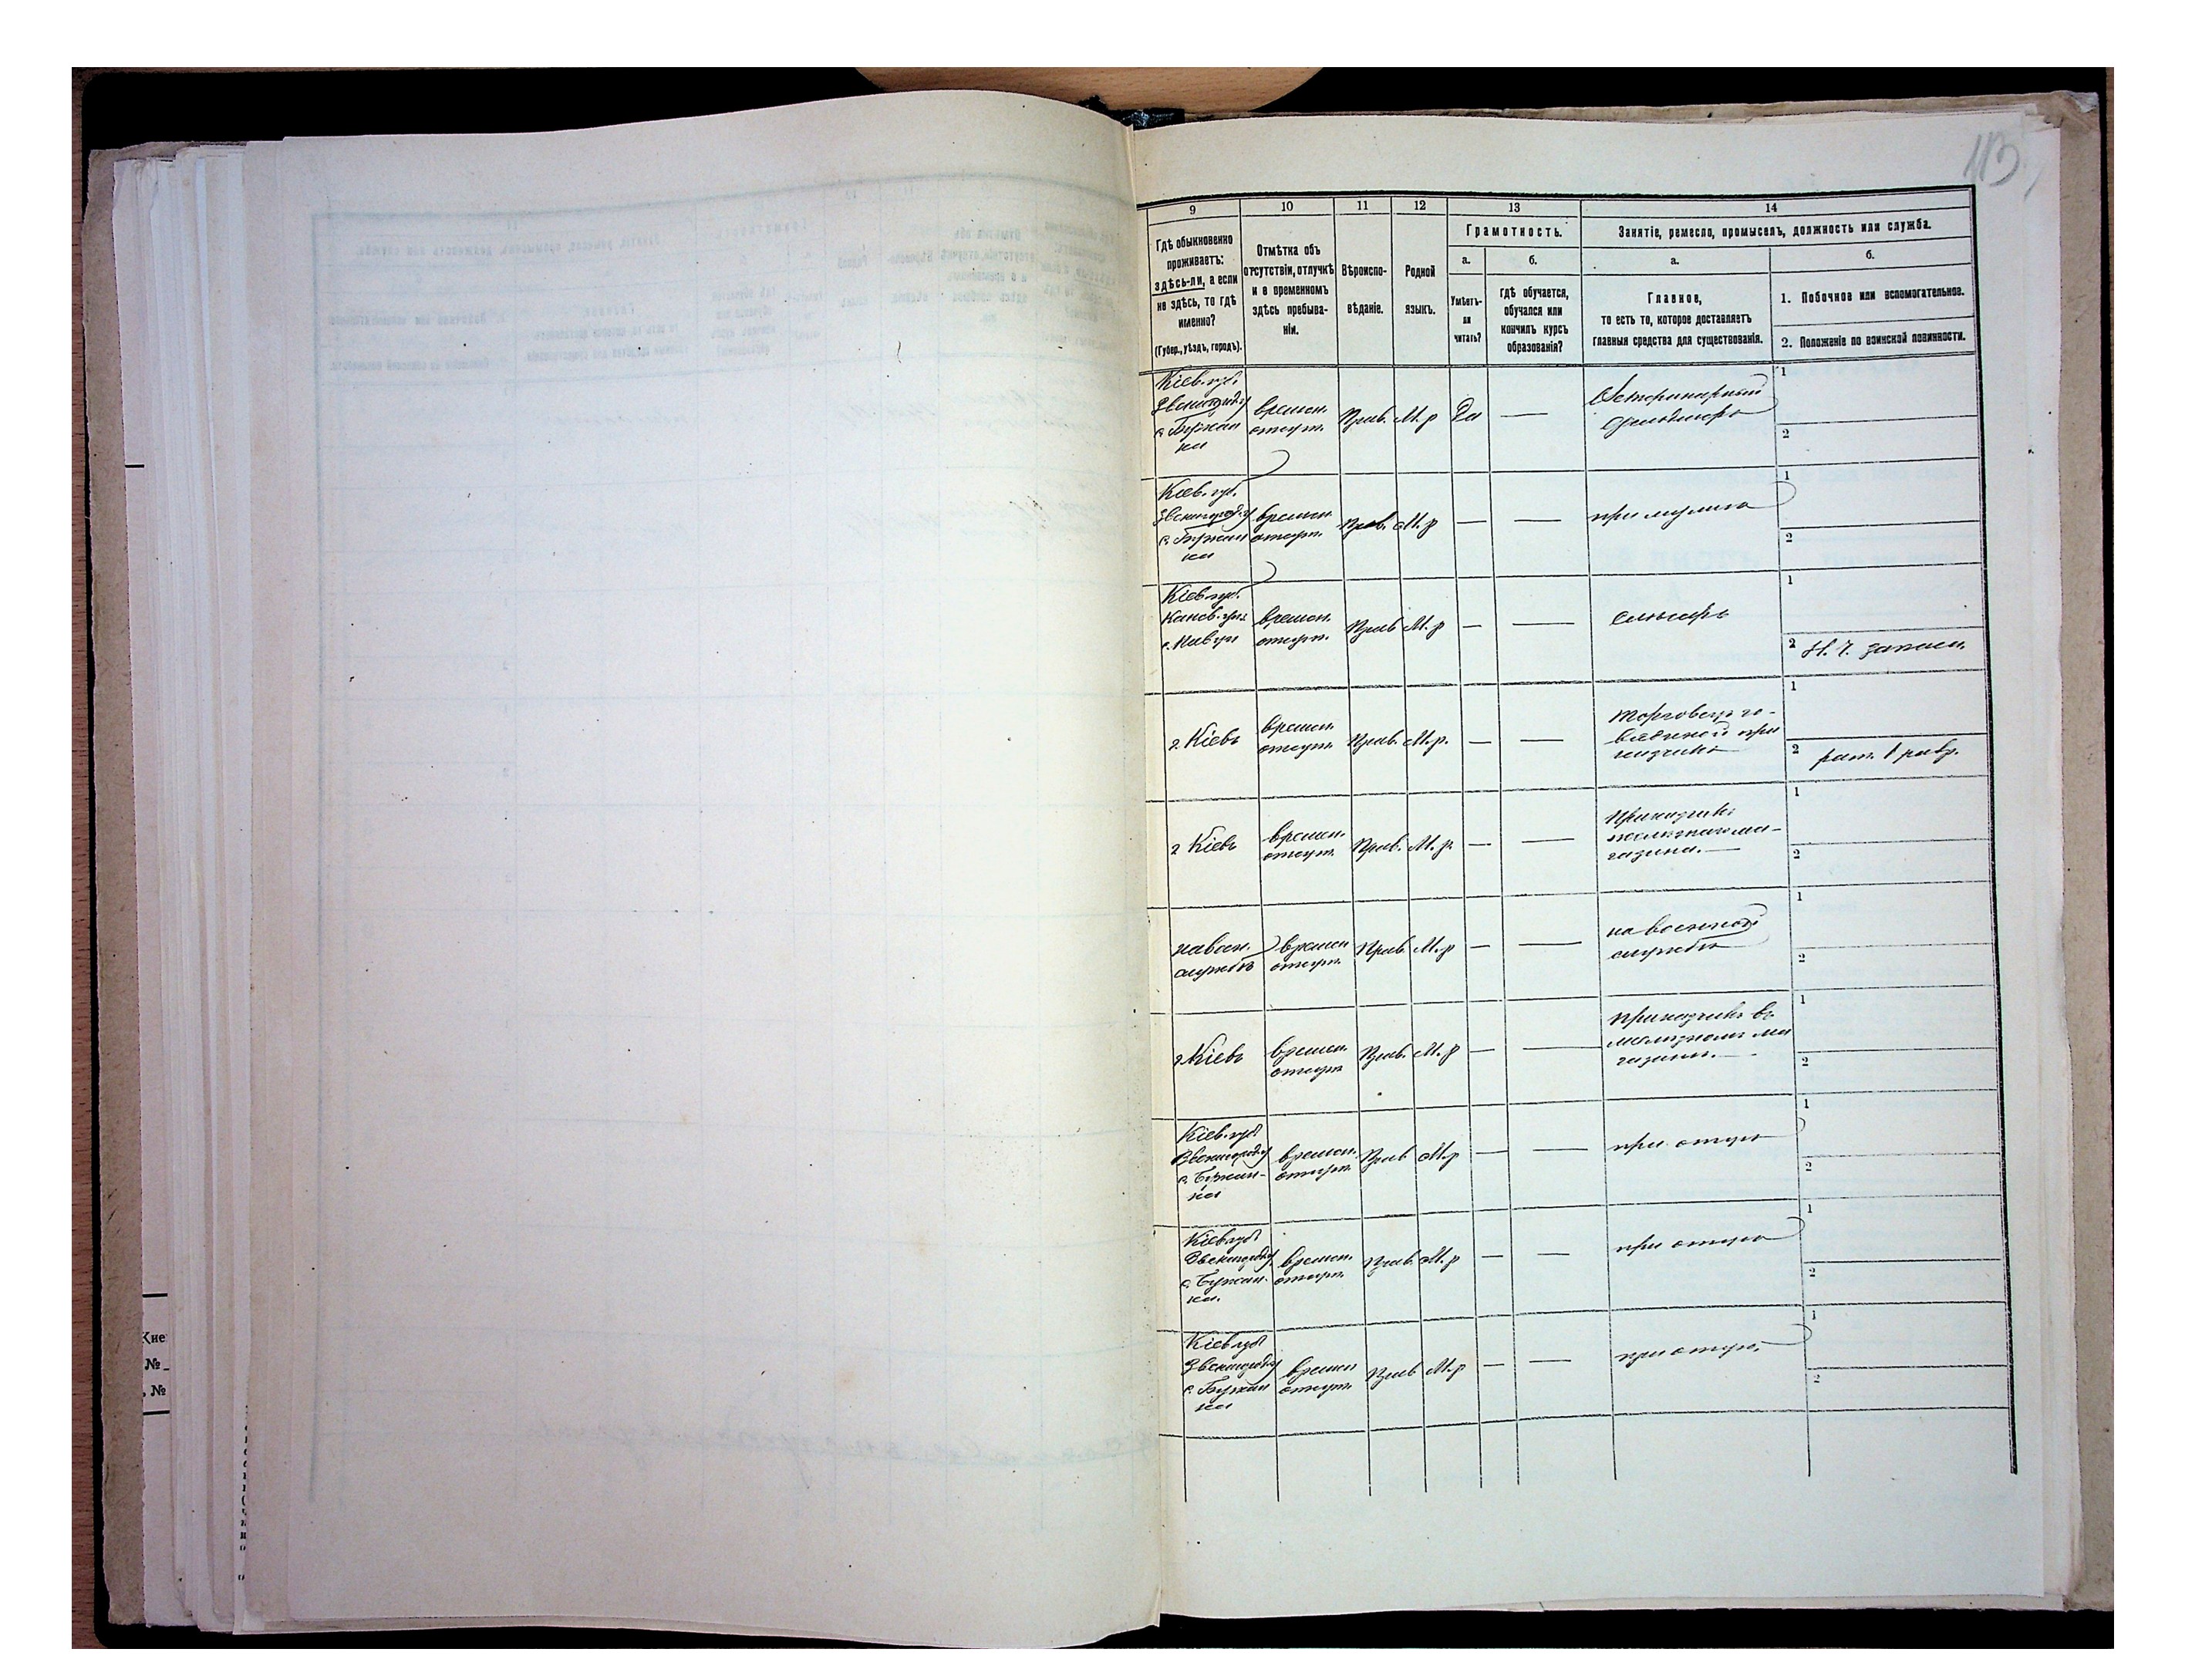 113
9 10 11 12 13 14
Грамотность.
Занятіе, ремесло, промыселъ, должность или служба.
Гдѣ обыкновенно
проживаетъ:
здѣсь-ли, а если
не здѣсь, то гдѣ
именно?
(Губер., уѣздъ, городъ).
Отмѣтка объ
отсутствіи, отлучкѣ
и о временномъ
здѣсь пребыва-
ніи.
Вѣроиспо-
вѣданіе.
Родной
языкъ.
а.
Умѣетъ-
ли
читать?
б.
гдѣ обучается,
обучался или
кончилъ курсъ
образованія?
а.
Главное,
то есть то, которое доставляетъ
главныя средства для существованія.
б.
1. Побочное или вспомогательное.
2. Положеніе по воинской повинности.
Кіев. губ.
Звенигород. у
с. Бужан
ка
времен.
отсут.
Прав.
М. р
Да
—
Ветеринарный
фельдшеръ
1
2
Кіев. губ.
Звенигород. у
с. Бужан
ка
времен.
отсут.
Прав.
М. р
—
—
при
1
2
Кіев. губ.
Канев. у
с.
времен.
отсут.
Прав
М. р
—
—
слесарь
1
2 запасн.
г. Кіевъ
времен.
отсут.
Прав.
М. р.
—
—
Торговецъ го-
вядиной при
1
2 рат. 1 разр.
г Кіевъ
времен.
отсут.
Прав.
М. р.
—
—
Приказчикъ
ма-
газина. —
1
2
на воен.
службѣ
времен
отсут.
Прав.
М. р
—
—
на военной
службѣ
1
2
г. Кіевъ
времен.
отсут.
Прав.
М. р
—
—
приказчикъ въ
ма
газинѣ. —
1
2
Кіев. губ
Звенигород. у
с. Бужан-
ка
времен.
отсут.
Прав
М. р
—
—
при отцѣ
1
2
Кіев. губ
Звенигород. у
с. Бужан-
ка.
времен.
отсут.
Прав.
М. р
—
—
при отцѣ
1
2
Кіев. губ
Звенигород. у
с. Бужан
ка
времен
отсут.
Прав
М. р
—
—
при отцѣ
1
2
Кие
№
, №